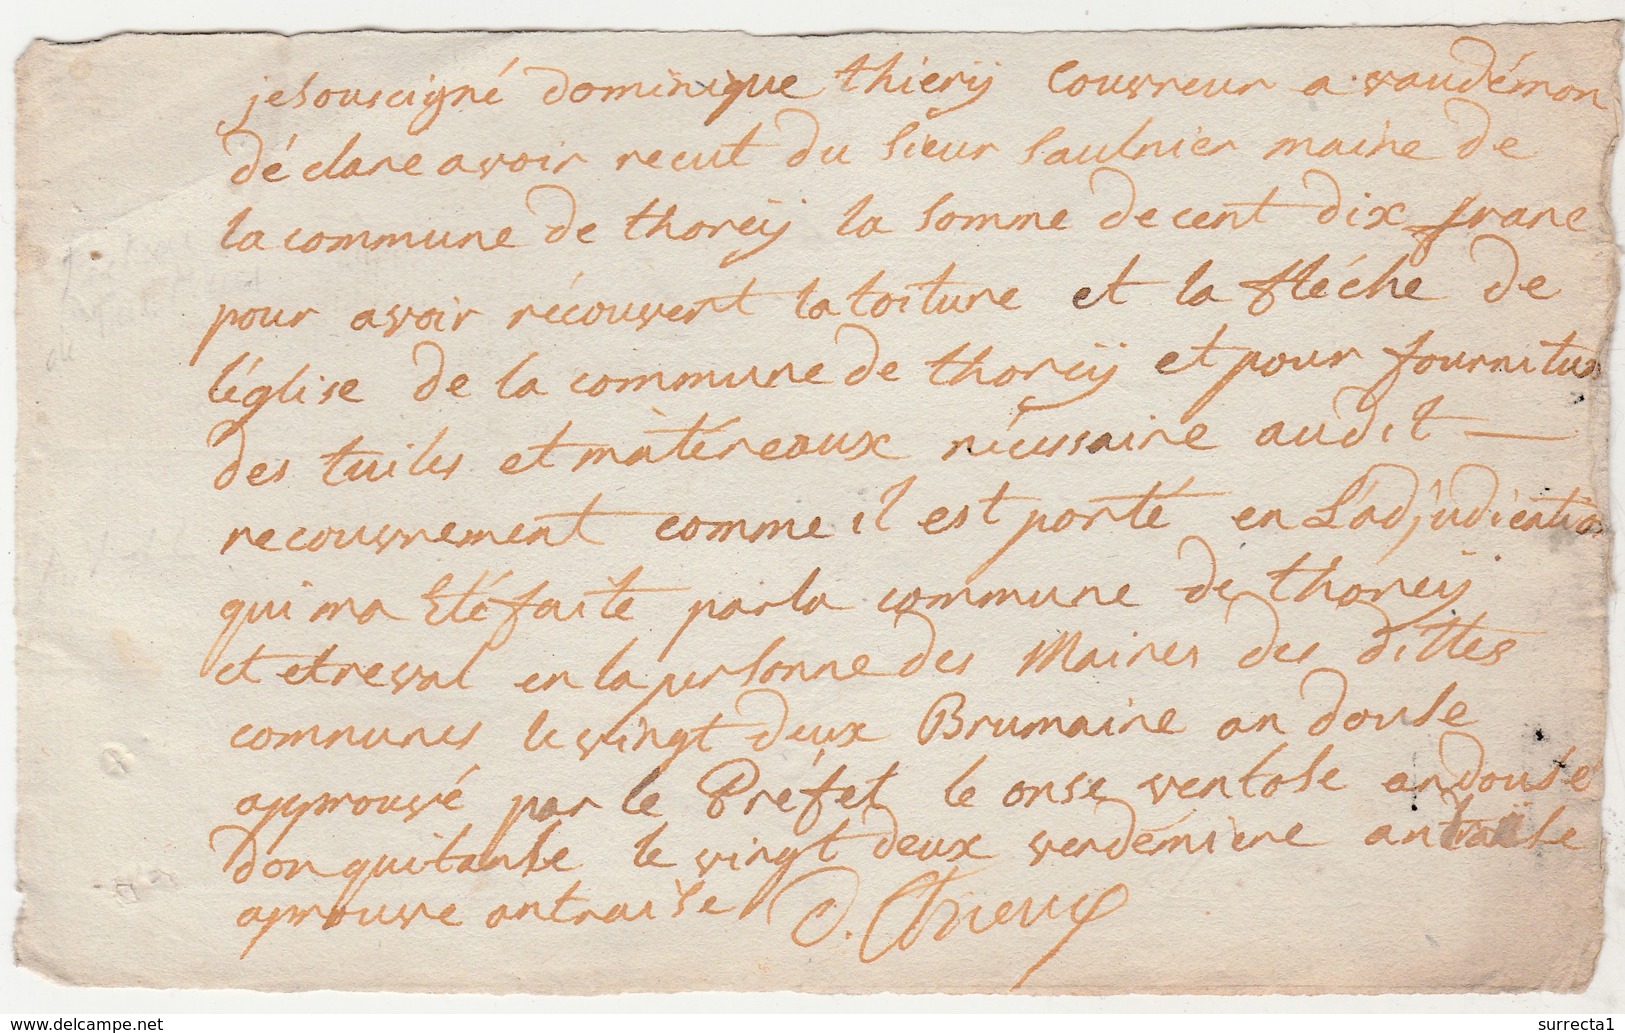 jesouseigné dominique thierÿ Couvreur a vaudémon
déclare avoir recut du sieur saulnier maire de
la commune de thoreÿ la somme de cent dix franc
pour avoir récouvert la toiture et la fléche de
l'église de la commune de thoreÿ et pour fournitu
des tuiles et matéreaux nécessaire audit —
recouvrement comme il est porté en L'adjudicatio
qui ma Eté faite par la commune de thoreÿ
et etreval en la personne des Maires des dittes
communes le vingt deux Brumaire an douse
approuvé par le Préfet le onse ventose an douse
don quitanse le vingt deux vendemiere an traise
aprouve an traise D. Thiery
www.delcampe.net
surrecta1